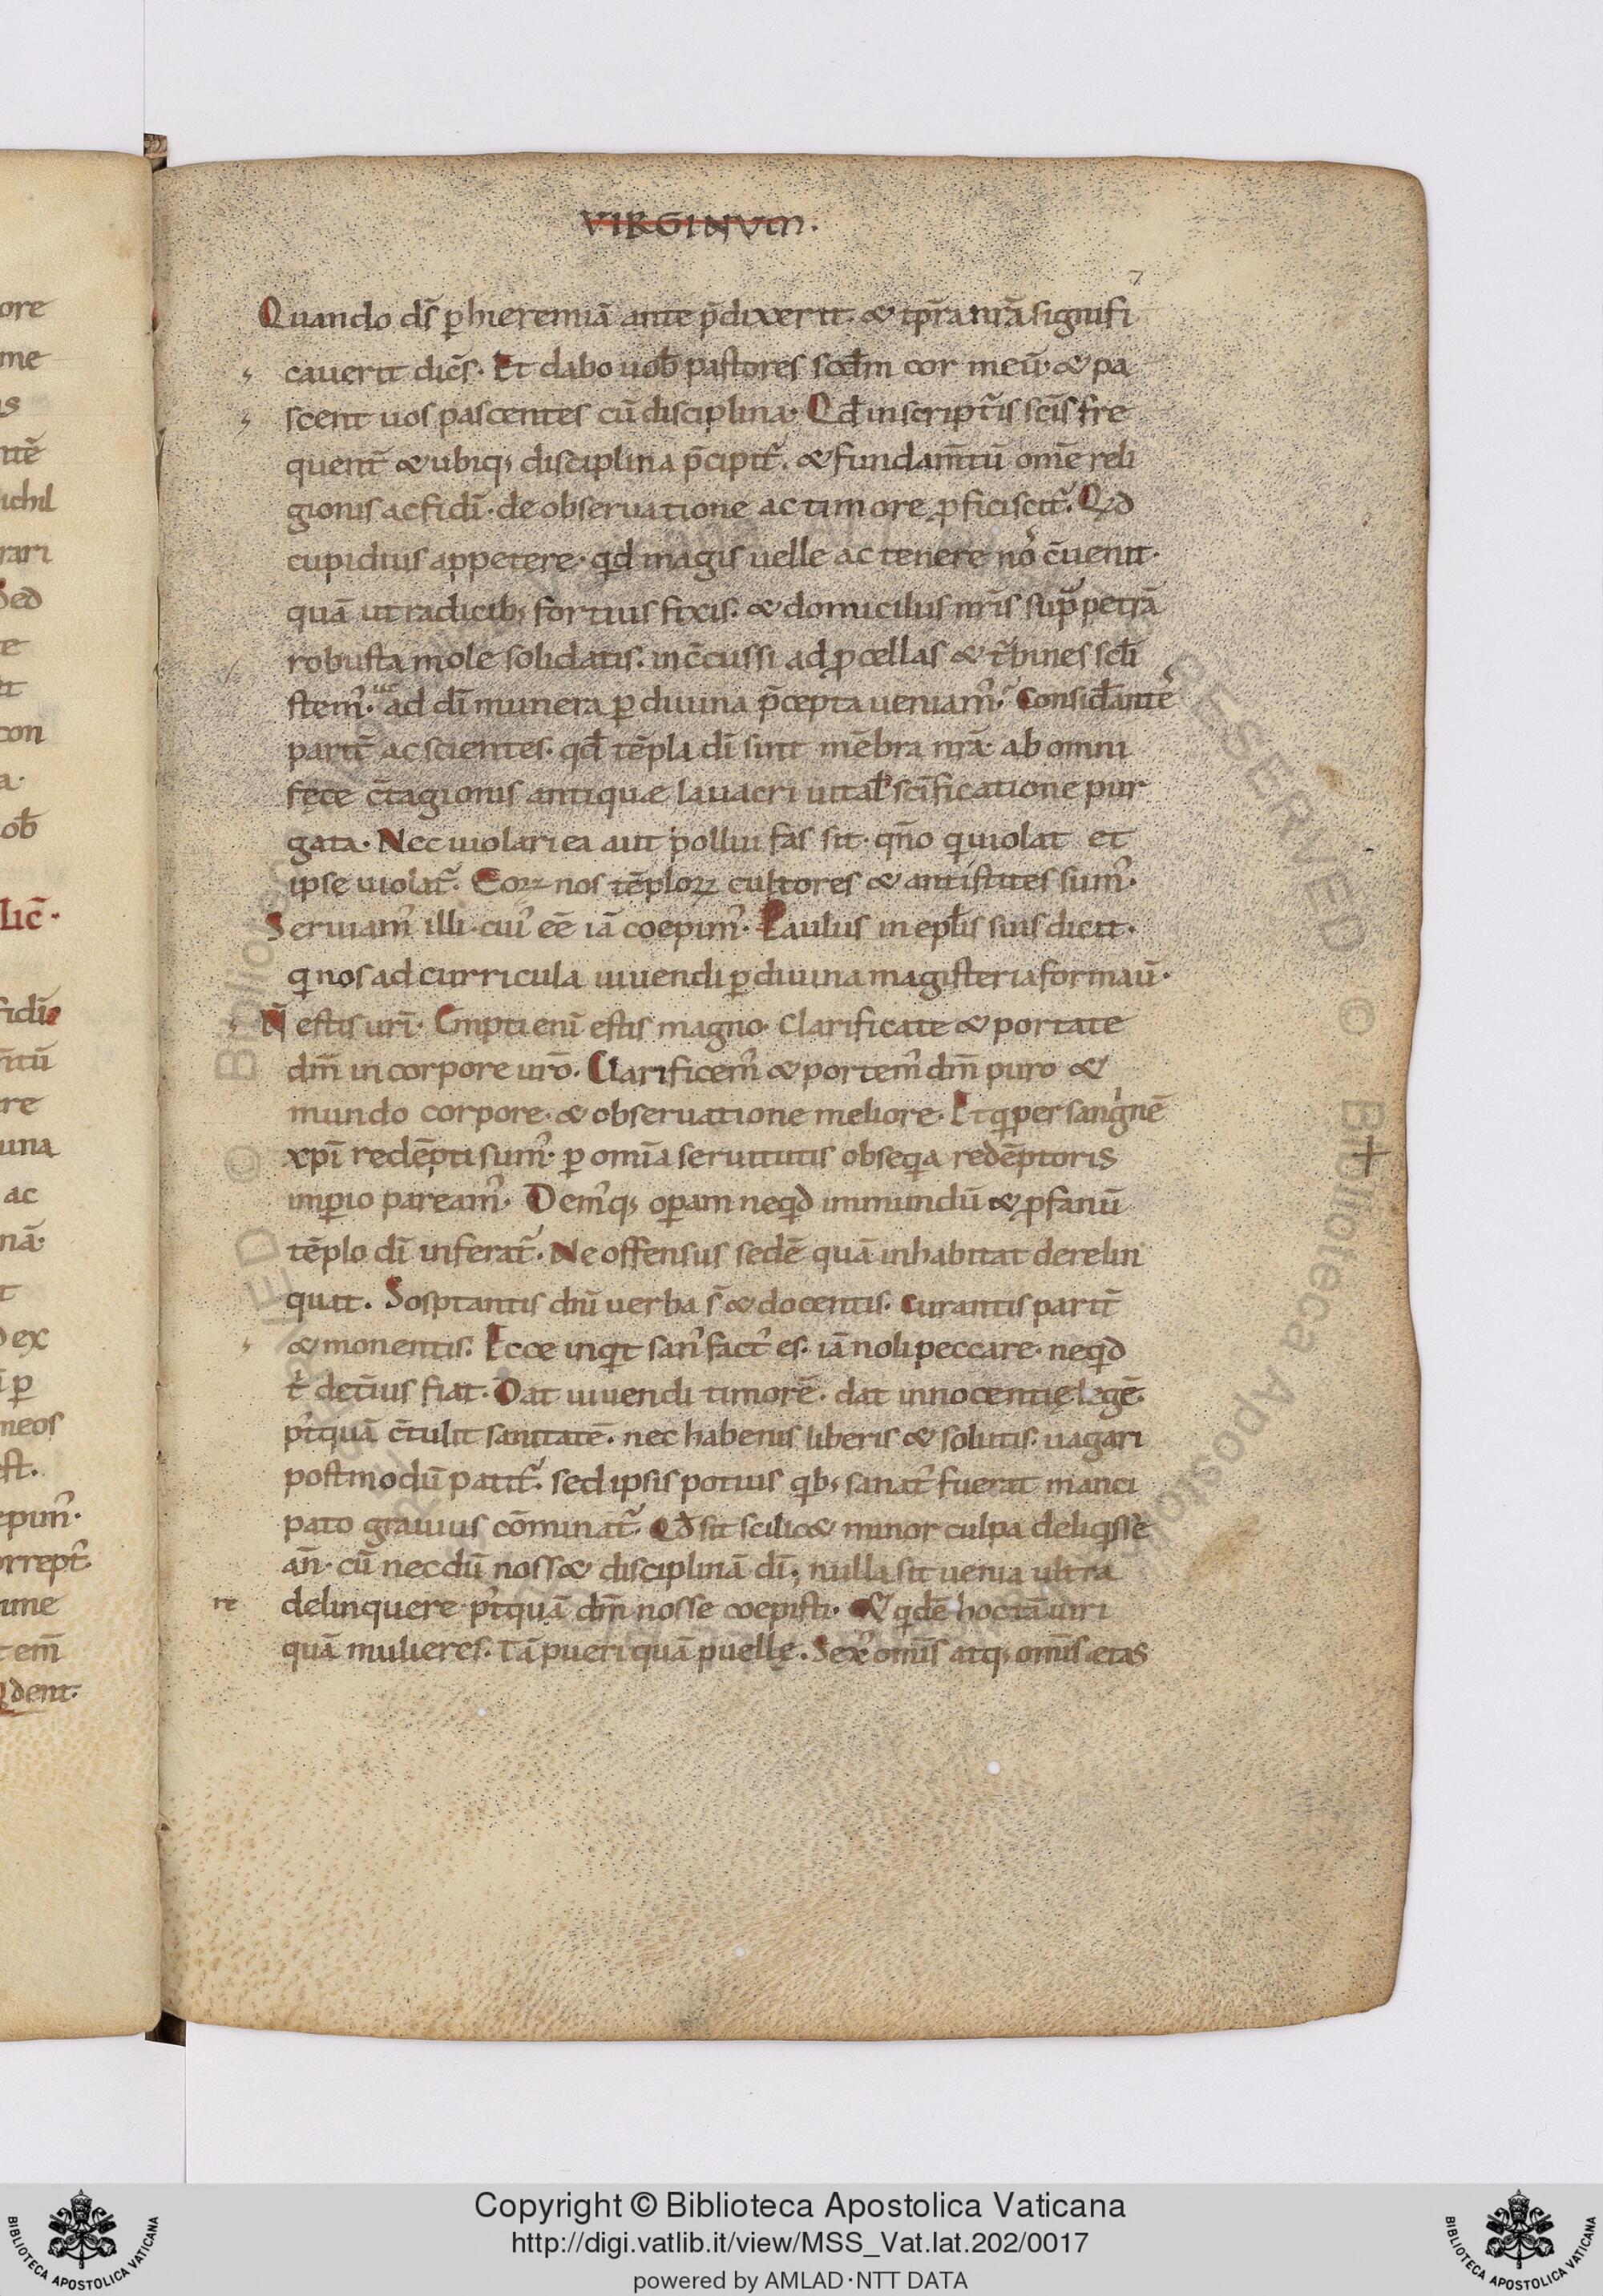 ore
me
ntē
ichil
rari
Sed
con
a·
ob̄
Lic̄·
fidī
ntū
re
una
ac
nā·
ꝺ ex
ī ꝑ
neos
eſt.
epim᷒·
orrept᷒
ume
tem̄
Qdent·
VIRGINVM.
7
Quando dſ̄ ꝑ hieremiā ante p̄dixerit· & tp̄ra nr̄a ſignifi
cauerit dic̄s· Et dabo uob̄ paſtores scd̄m cor meū· & pa
scent uos pascentes cū disciplina· Qd̄ in scriptur̄is sc̄is fre
quent̄ & ubiq; disciplina p̄cipit᷑. & fundam̄tū om̄e reli
gionis ac fidī· de obseruatione ac timore ꝓficiscit᷑. Qꝺ
cupidius appetere· qd magis uelle ac tenere nō c̄uenit·
quā ut radicib; fortius fixis· & domiciliis nr̄is sup̄ petrā
robusta mole solidatis· inc̄cussi ad ꝓcellas & t᷑bines sc̄li
stem᷒· ut ad dī munera ꝑ diuina p̄cepta ueniam᷒· Consid̄antes
parit̄ ac scientes· qd̄ tēpla dī sint mēbra nr̄a· ab omni
fęce c̄tagionis antiquæ lauacri uital̄ sc̄ificatione pur
gata· Nec uiolari ea aut pollui fas sit· qn̄o qi uiolat et
ipse uiolat᷑. Eoꝝ nos tēploꝝ cultores & antistites sum᷒·
Seruiam᷒ illi· cui᷒ eē iā coepim᷒· Paulus in epl̄is suis dicit·
qi nos ad curricula uiuendi ꝑ diuina magisteria formau̅·
N̄ estis urī· Empti enī estis magno· Clarificate & portate
dm̄ in corpore urō. Clarificem᷒ & portem᷒ dm̄ puro &
mundo corpore· & obseruatione meliore· Et qi per sangine̅
xpī redēpti sum᷒· ꝑ omīa seruitutis obseqia redēptoris
imꝑio paream᷒· Dem᷒q; oꝑam neqid immundū & ꝓfanū
tēplo dī inferat᷑. Ne offensus sedē quā inhabitat derelin
quat. Sosptantis dnī uerba s̄ & docentis· curantis parit̄
& monentis. Ecce inqit san᷒ fact᷒ es· iā noli peccare· neqid
t' det̄ius fiat· Dat uiuendi timorē· dat innocentię legē·
p᷒tquā c̄tulit sanitatē· nec habenis liberis & solutis· uagari
postmodū patit᷑. sed ipsis potius qib; sanat᷒ fuerat manci
pato grauius cōminat᷑. Qd̄ sit scilic& minor culpa deliqisse
an̄· cū necdū noss& disciplinā dī; nulla sit uenia ultra
re
delinquere p᷒tquā dm̄ nosse coepisti· & qidē hoc tā uiri
quā mulieres. Tā pueri quā puellę. Sex᷒ omīs atq; omīs ætas
Copyright © Biblioteca Apostolica Vaticana
http://digi.vatlib.it/view/MSS_Vat.lat.202/0017
powered by AMLAD·NTT DATA
BIBLIOTECA APOSTOLICA VATICANA
BIBLIOTECA APOSTOLICA VATICANA